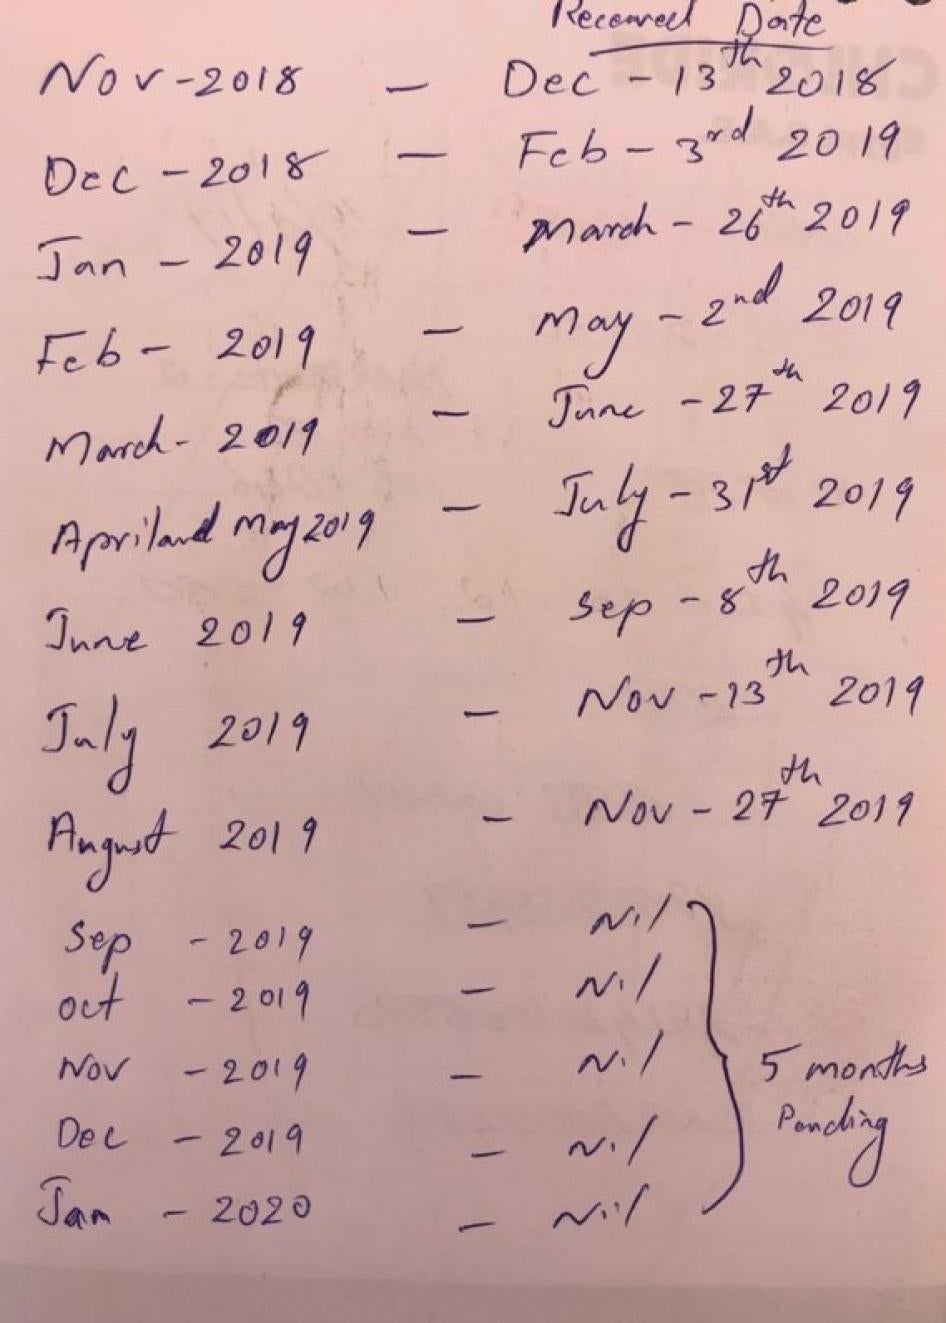 Received Date
Nov-2018 - Dec - 13th 2018
Dec - 2018 - Feb - 3rd 2019
Jan - 2019 - March - 26th 2019
Feb - 2019 - May - 2nd 2019
March - 2019 - June - 27th 2019
April and May 2019 - July - 31st 2019
June 2019 - Sep - 8th 2019
July 2019 - Nov - 13th 2019
August 2019 - Nov - 27th 2019
Sep - 2019 - Nil
Oct - 2019 - Nil
Nov - 2019 - Nil
Dec - 2019 - Nil
Jan - 2020 - Nil
5 months
Pending